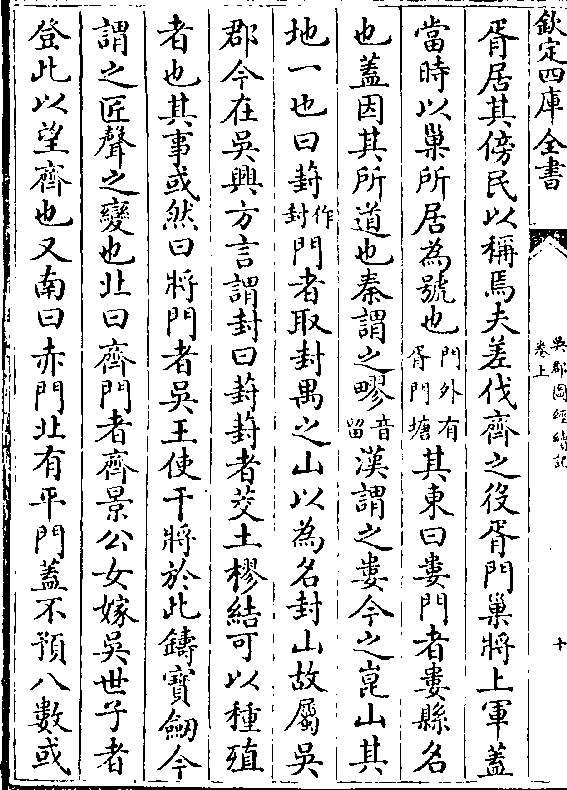 欽定四庫全書
吳郡圖經續記
卷上
十
胥居其傍民以稱焉夫差伐齊之役胥門巢將上軍蓋
當時以巢所居為號也門外有胥門塘其東曰婁門者婁縣名
也蓋因其所道也秦謂之疁音留漢謂之婁今之崑山其
地一也曰葑作封門者取封禺之山以為名封山故屬吳
郡今在吳興方言謂封曰葑葑者茭土樛結可以種殖
者也其事或然曰將門者吳王使干將於此鑄寶劒今
謂之匠聲之變也北曰齊門者齊景公女嫁吳世子者
登此以望齊也又南曰赤門北有平門蓋不預八數或